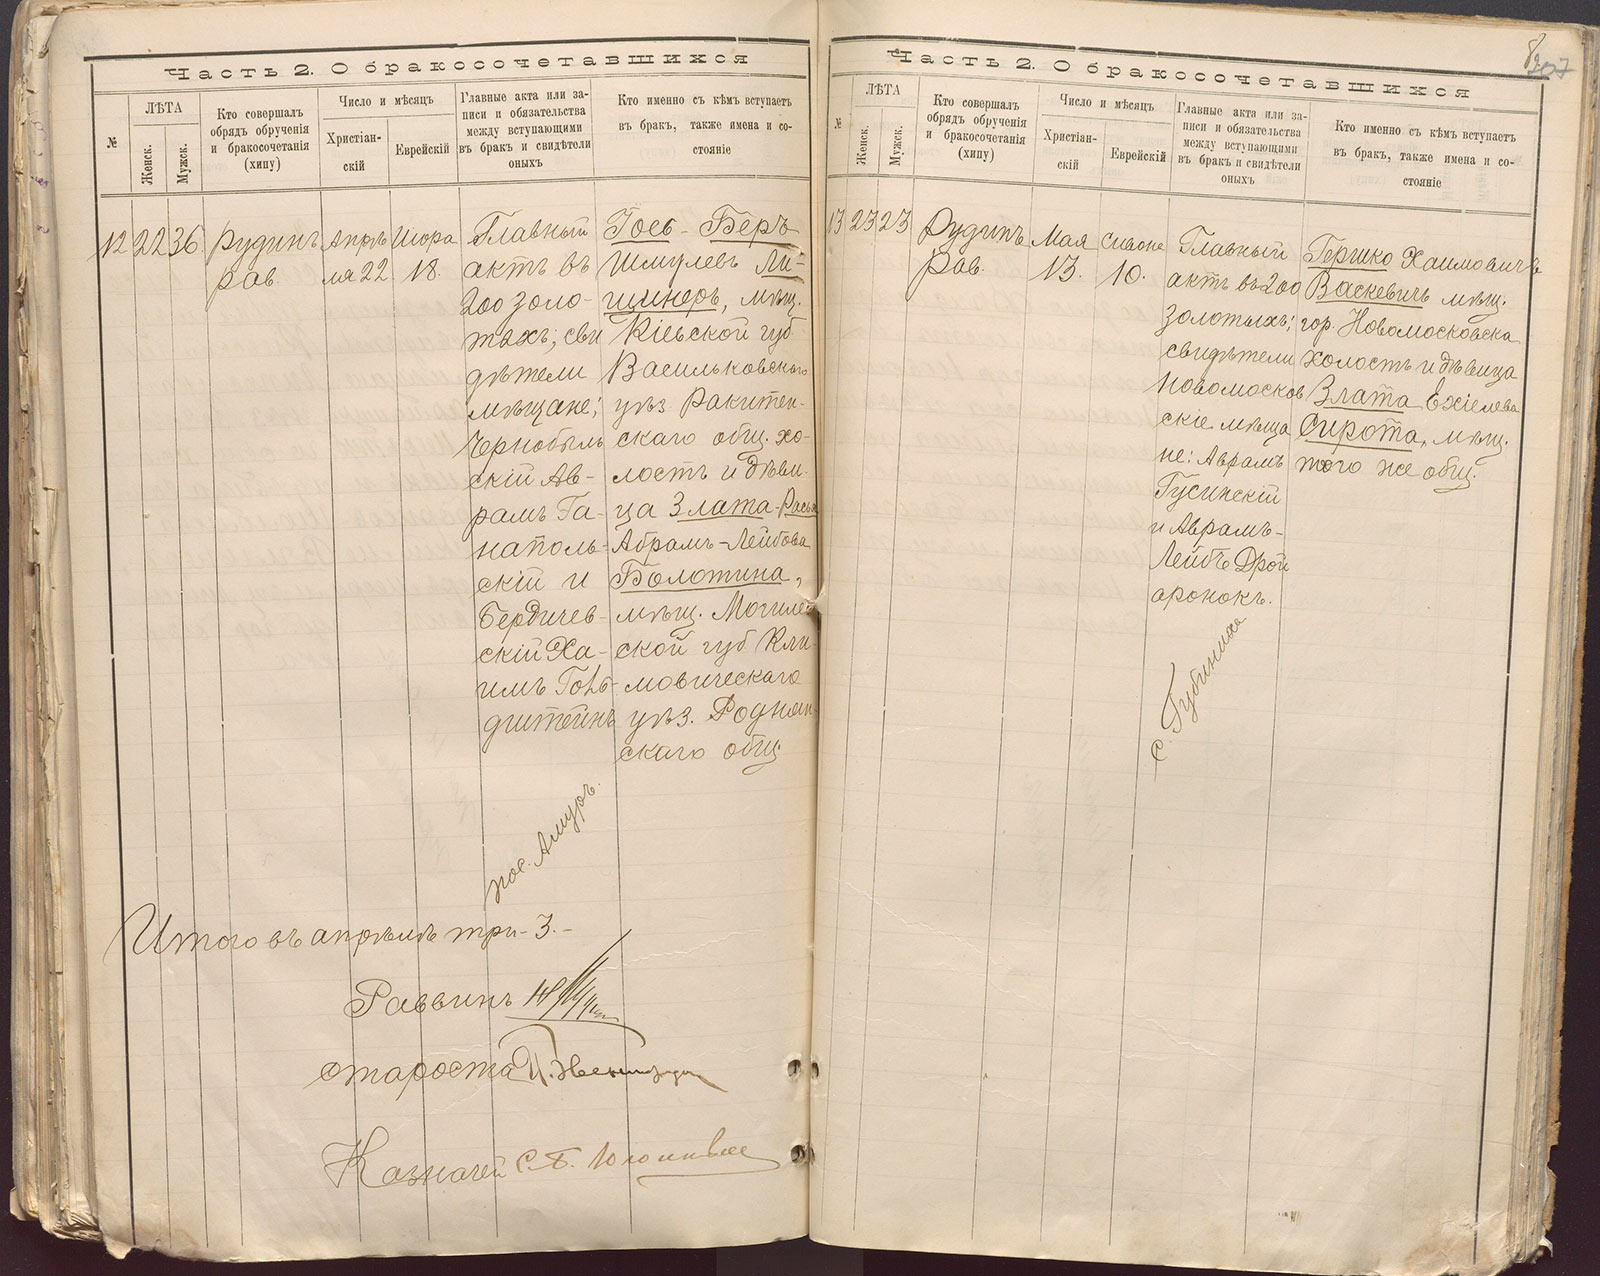 Часть 2. О бракосочетавшихся
№
ЛѢТА
Женск.
Мужск.
Кто совершалъ
обрядъ обрученія
и бракосочетанія
(хипу)
Число и мѣсяцъ
Христіан-
скій
Еврейскій
Главные акта или за-
писи и обязательства
между вступающими
въ бракъ и свидѣтели
оныхъ
Кто именно съ кѣмъ вступаетъ
въ бракъ, также имена и со-
стояніе
12
22
36.
Рудинъ
рав.
Апрѣ-
ля 22
Иора
18.
Главный
актъ въ
200 золо-
тыхъ; сви
дѣтели
мѣщане;
Чернобыль
скій Ав-
рамъ Га-
наполь-
скій и
Бердичев-
скій Ха-
имъ Голь-
дштейнъ
Іось-Беръ
Шмулевъ Ли-
щинеръ, мѣщ.
Кіевской губ
Васильковскаго
уѣз Ракитен-
скаго общ. хо-
лостъ и дѣви-
ца Злата-Расья
Абрамъ-Лейбова
Болотина,
мѣщ. Могилев
ской губ Кли-
мовическаго
уѣз. Роднян-
скаго общ.
пос. Амуръ.
Итого въ апрѣлѣ три-3.-
Раввинъ
староста
Казначей С.
Часть 2. О бракосочетавшихся
207
№
ЛѢТА
Женск.
Мужск.
Кто совершалъ
обрядъ обрученія
и бракосочетанія
(хипу)
Число и мѣсяцъ
Христіан-
скій
Еврейскій
Главные акта или за-
писи и обязательства
между вступающими
въ бракъ и свидѣтели
оныхъ
Кто именно съ кѣмъ вступаетъ
въ бракъ, также имена и со-
стояніе
13
23
23
Рудинъ
Рав.
Мая
13.
Сивона
10.
Главный
актъ въ 200
золотыхъ;
свидѣтели
Новомосков
скіе мѣща
не: Аврамъ
Гусинскій
и Аврамъ-
Лейбъ Дрой
аронокъ.
Гершко Хаимовичъ
Васкевичъ мѣщ.
гор. Новомосковска
холостъ и дѣвица
Злата Ехіелева
Сирота, мѣщ.
того же общ.
с. Губиниха